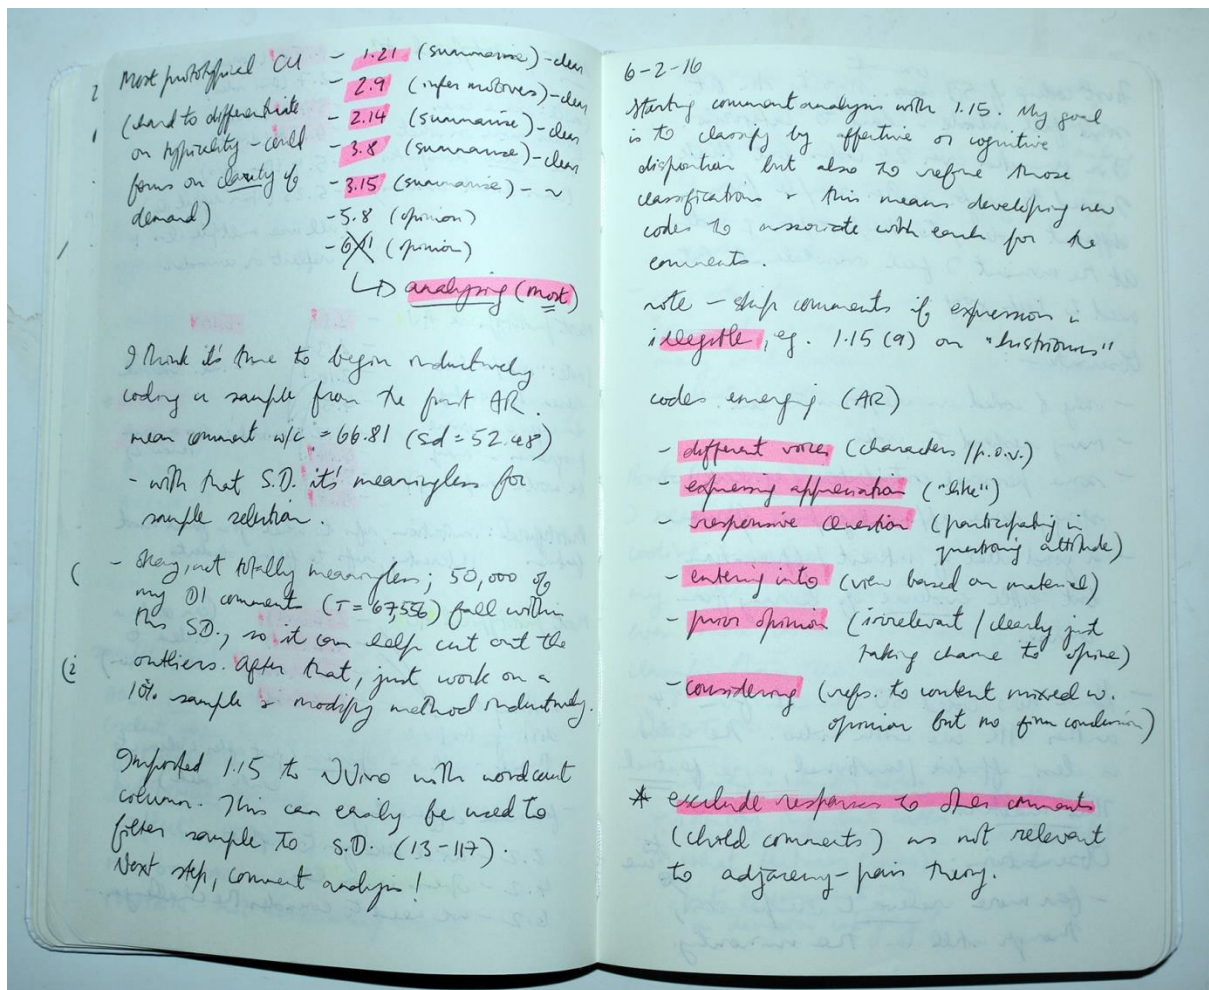 Most prototypical CU
(hard to differentiate
on typicality - could
focus on clarity of
demand)
- 1.21 (summarise) - clear
- 2.9 (infer motives) - clear
- 2.14 (summarise) - clear
- 3.8 (summarise) - clear
- 3.15 (summarise) - ~
- 5.8 (opinion)
- 6.11 (opinion)
↳ analysing (most)
I think it's time to begin inductively
coding a sample from the first AR.
mean comment w/c = 66.81 (sd = 52.48)
- with that S.D. it's meaningless for
sample selection.
- okay, not totally meaningless; 50,000 of
my D1 comments (T = 67,556) fall within
this S.D., so it can help cut out the
outliers. After that, just work on a
10% sample & modify method inductively.
Imported 1.15 to NVivo with wordcount
column. This can easily be used to
filter sample to S.D. (13-117).
Next step, comment analysis!
6-2-16
Starting comment analysis with 1.15. My goal
is to classify by affective or cognitive
disposition but also to refine those
classifications & this means developing new
codes to associate with each for the
comments.
note - skip comments if expression is
illegible, eg. 1.15 (9) on "histrionics"
codes emerging (AR)
- different voices (characters / p.o.v.)
- expressing appreciation ("like")
- responsive question (participating in
questioning attitude)
- entering into (view based on material)
- prior opinion (irrelevant / clearly just
taking chance to opine)
- considering (refs. to content mixed w.
opinion but no firm conclusion)
* exclude responses to other comments
(child comments) as not relevant
to adjacency-pair theory.